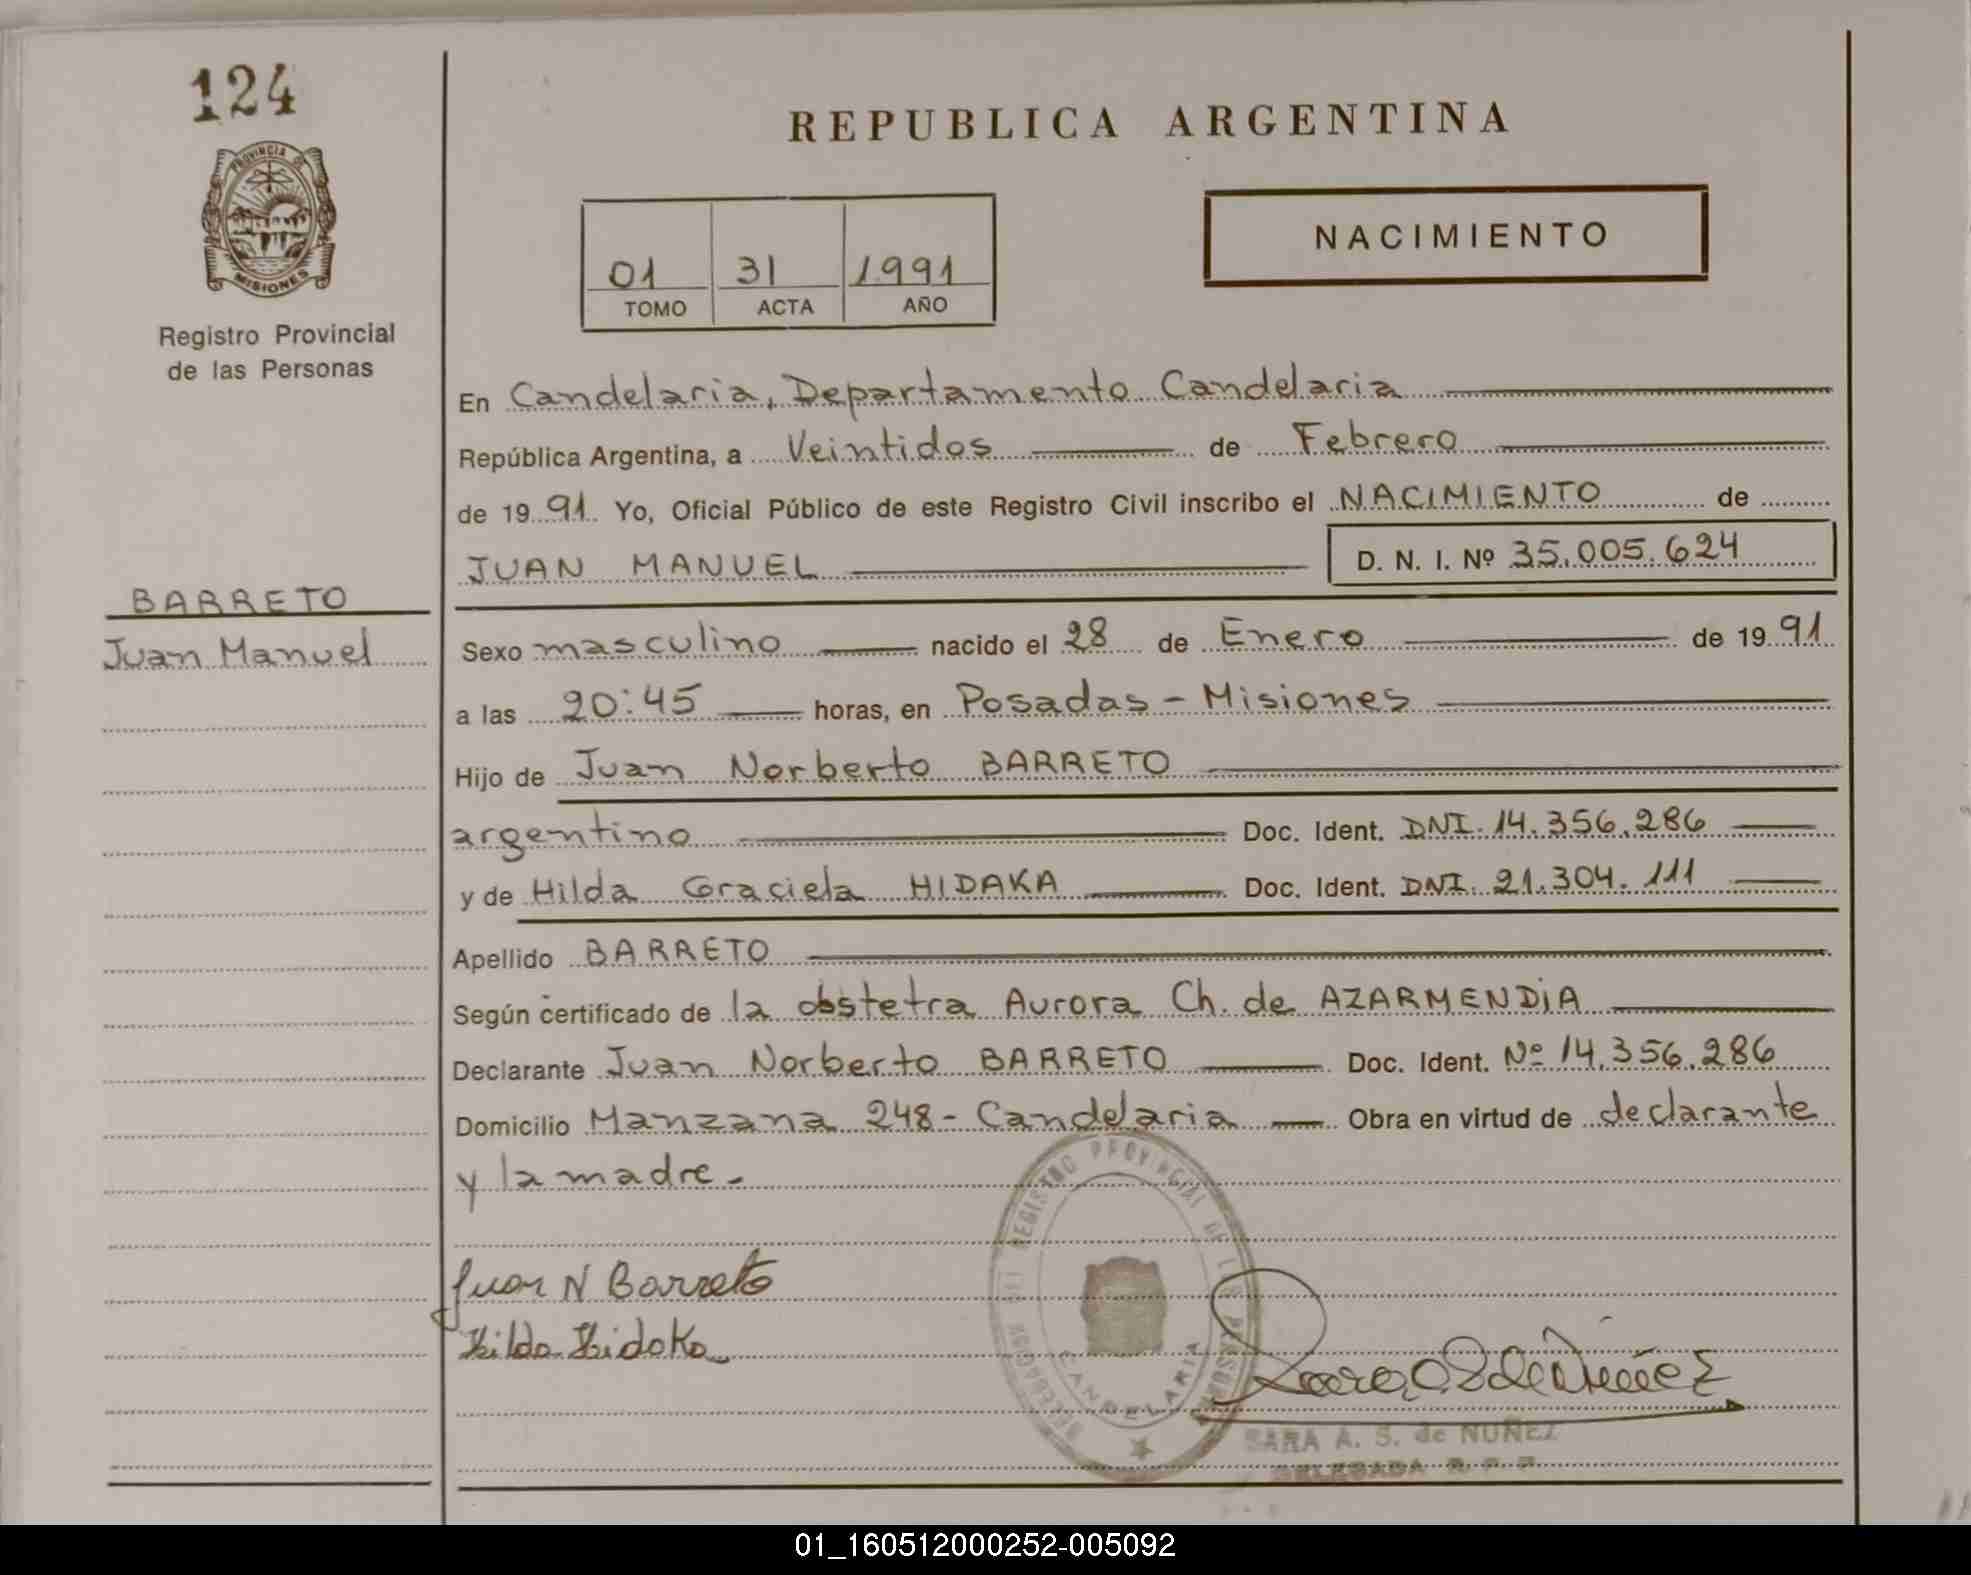 124
PROVINCIA DE
MISIONES
Registro Provincial
de las Personas
BARRETO
Juan Manuel
REPUBLICA ARGENTINA
01 31 1991
TOMO ACTA AÑO
NACIMIENTO
En Candelaria, Departamento Candelaria
República Argentina, a Veintidos de Febrero
de 1991 Yo, Oficial Público de este Registro Civil inscribo el NACIMIENTO de
JUAN MANUEL D. N. I. Nº 35.005.624
Sexo masculino nacido el 28 de Enero de 1991
a las 20:45 horas, en Posadas - Misiones
Hijo de Juan Norberto BARRETO
argentino Doc. Ident. DNI. 14.356.286
y de Hilda Graciela HIDAKA Doc. Ident. DNI. 21.304.111
Apellido BARRETO
Según certificado de la obstetra Aurora Ch. de AZARMENDIA
Declarante Juan Norberto BARRETO Doc. Ident. Nº 14.356.286
Domicilio Manzana 248 - Candelaria Obra en virtud de declarante
y la madre.
Juan N Barreto
Hilda Hidaka
REGISTRO PROVINCIAL DE LAS PERSONAS
CANDELARIA
SARA A. S. de NUÑEZ
DELEGADA R. P. P.
01_160512000252-005092